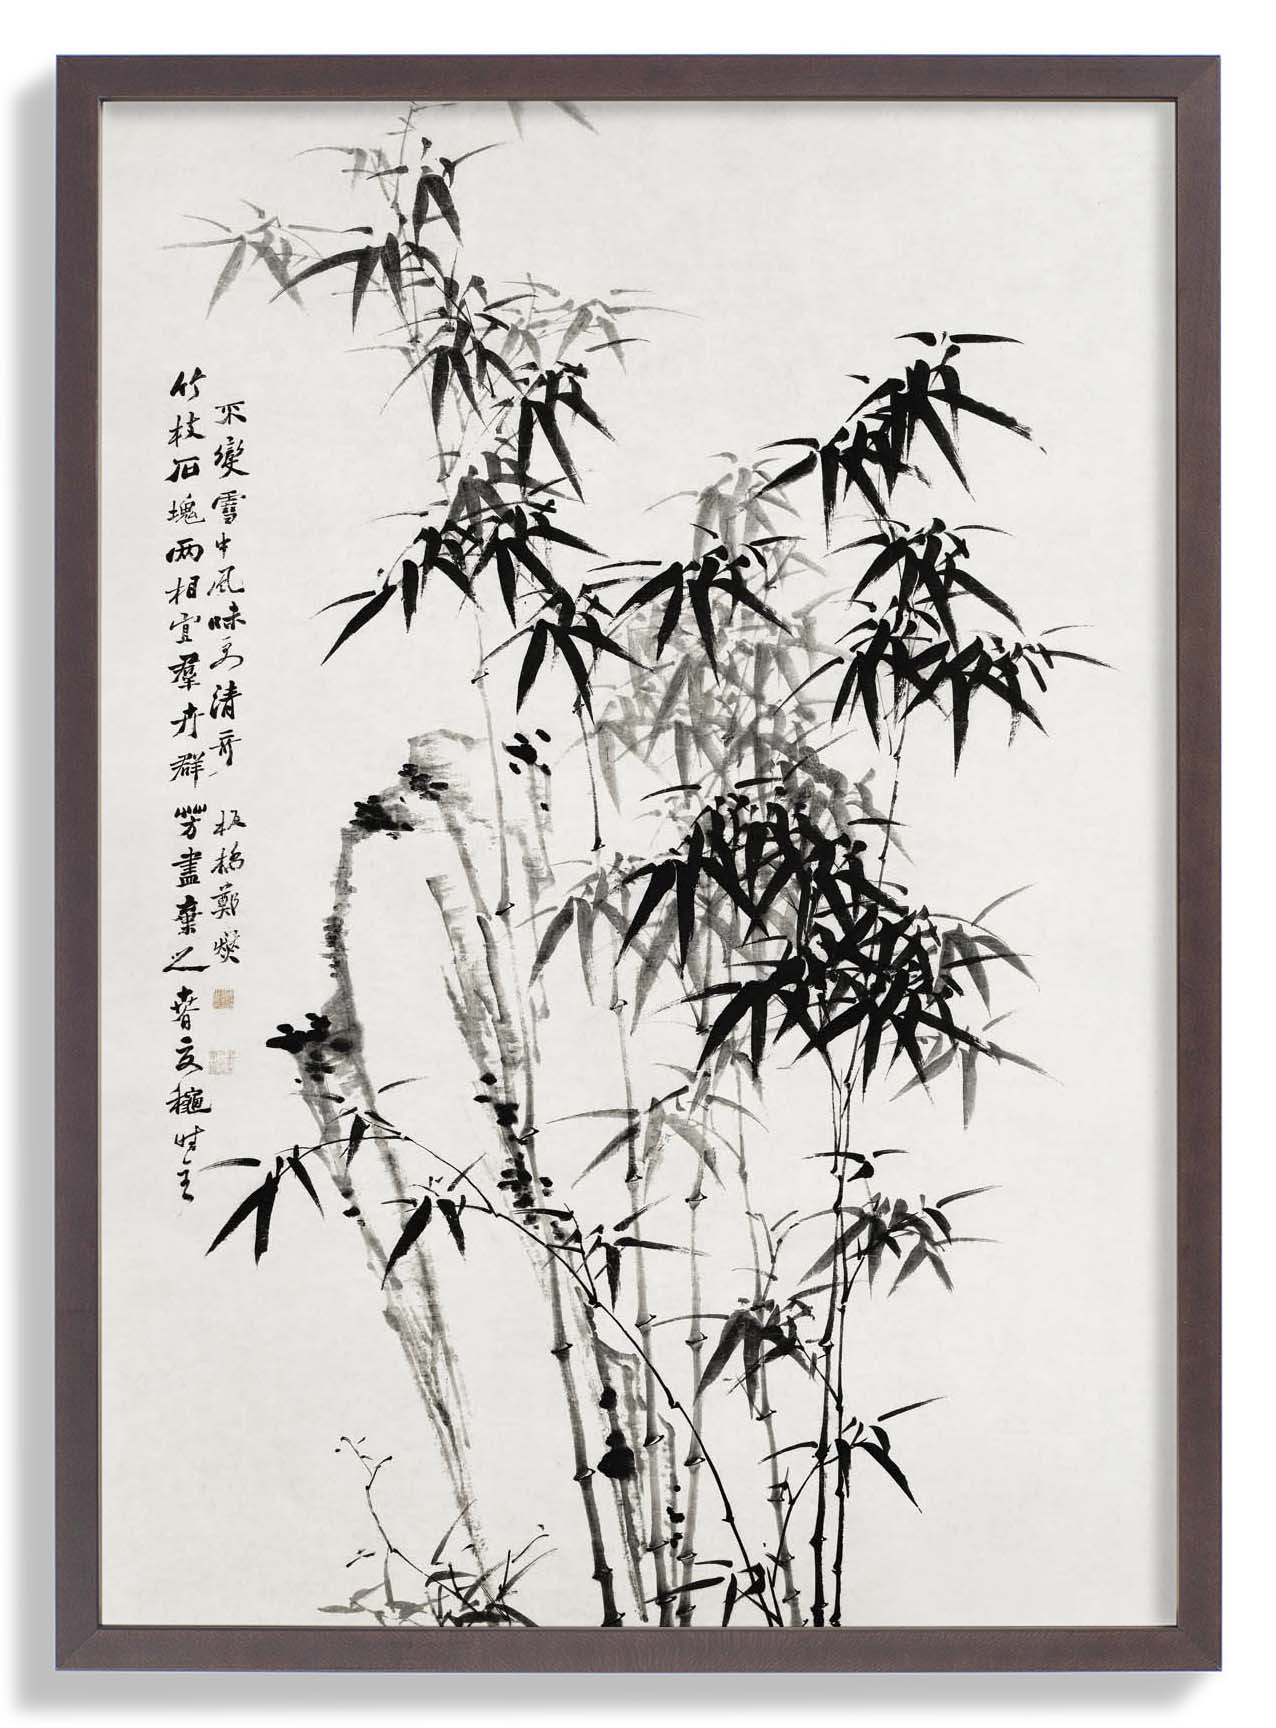 竹枝石塊两相宜羣卉群芳盡棄之春夏穐时全
不變雪中風味更清奇 板橋鄭燮